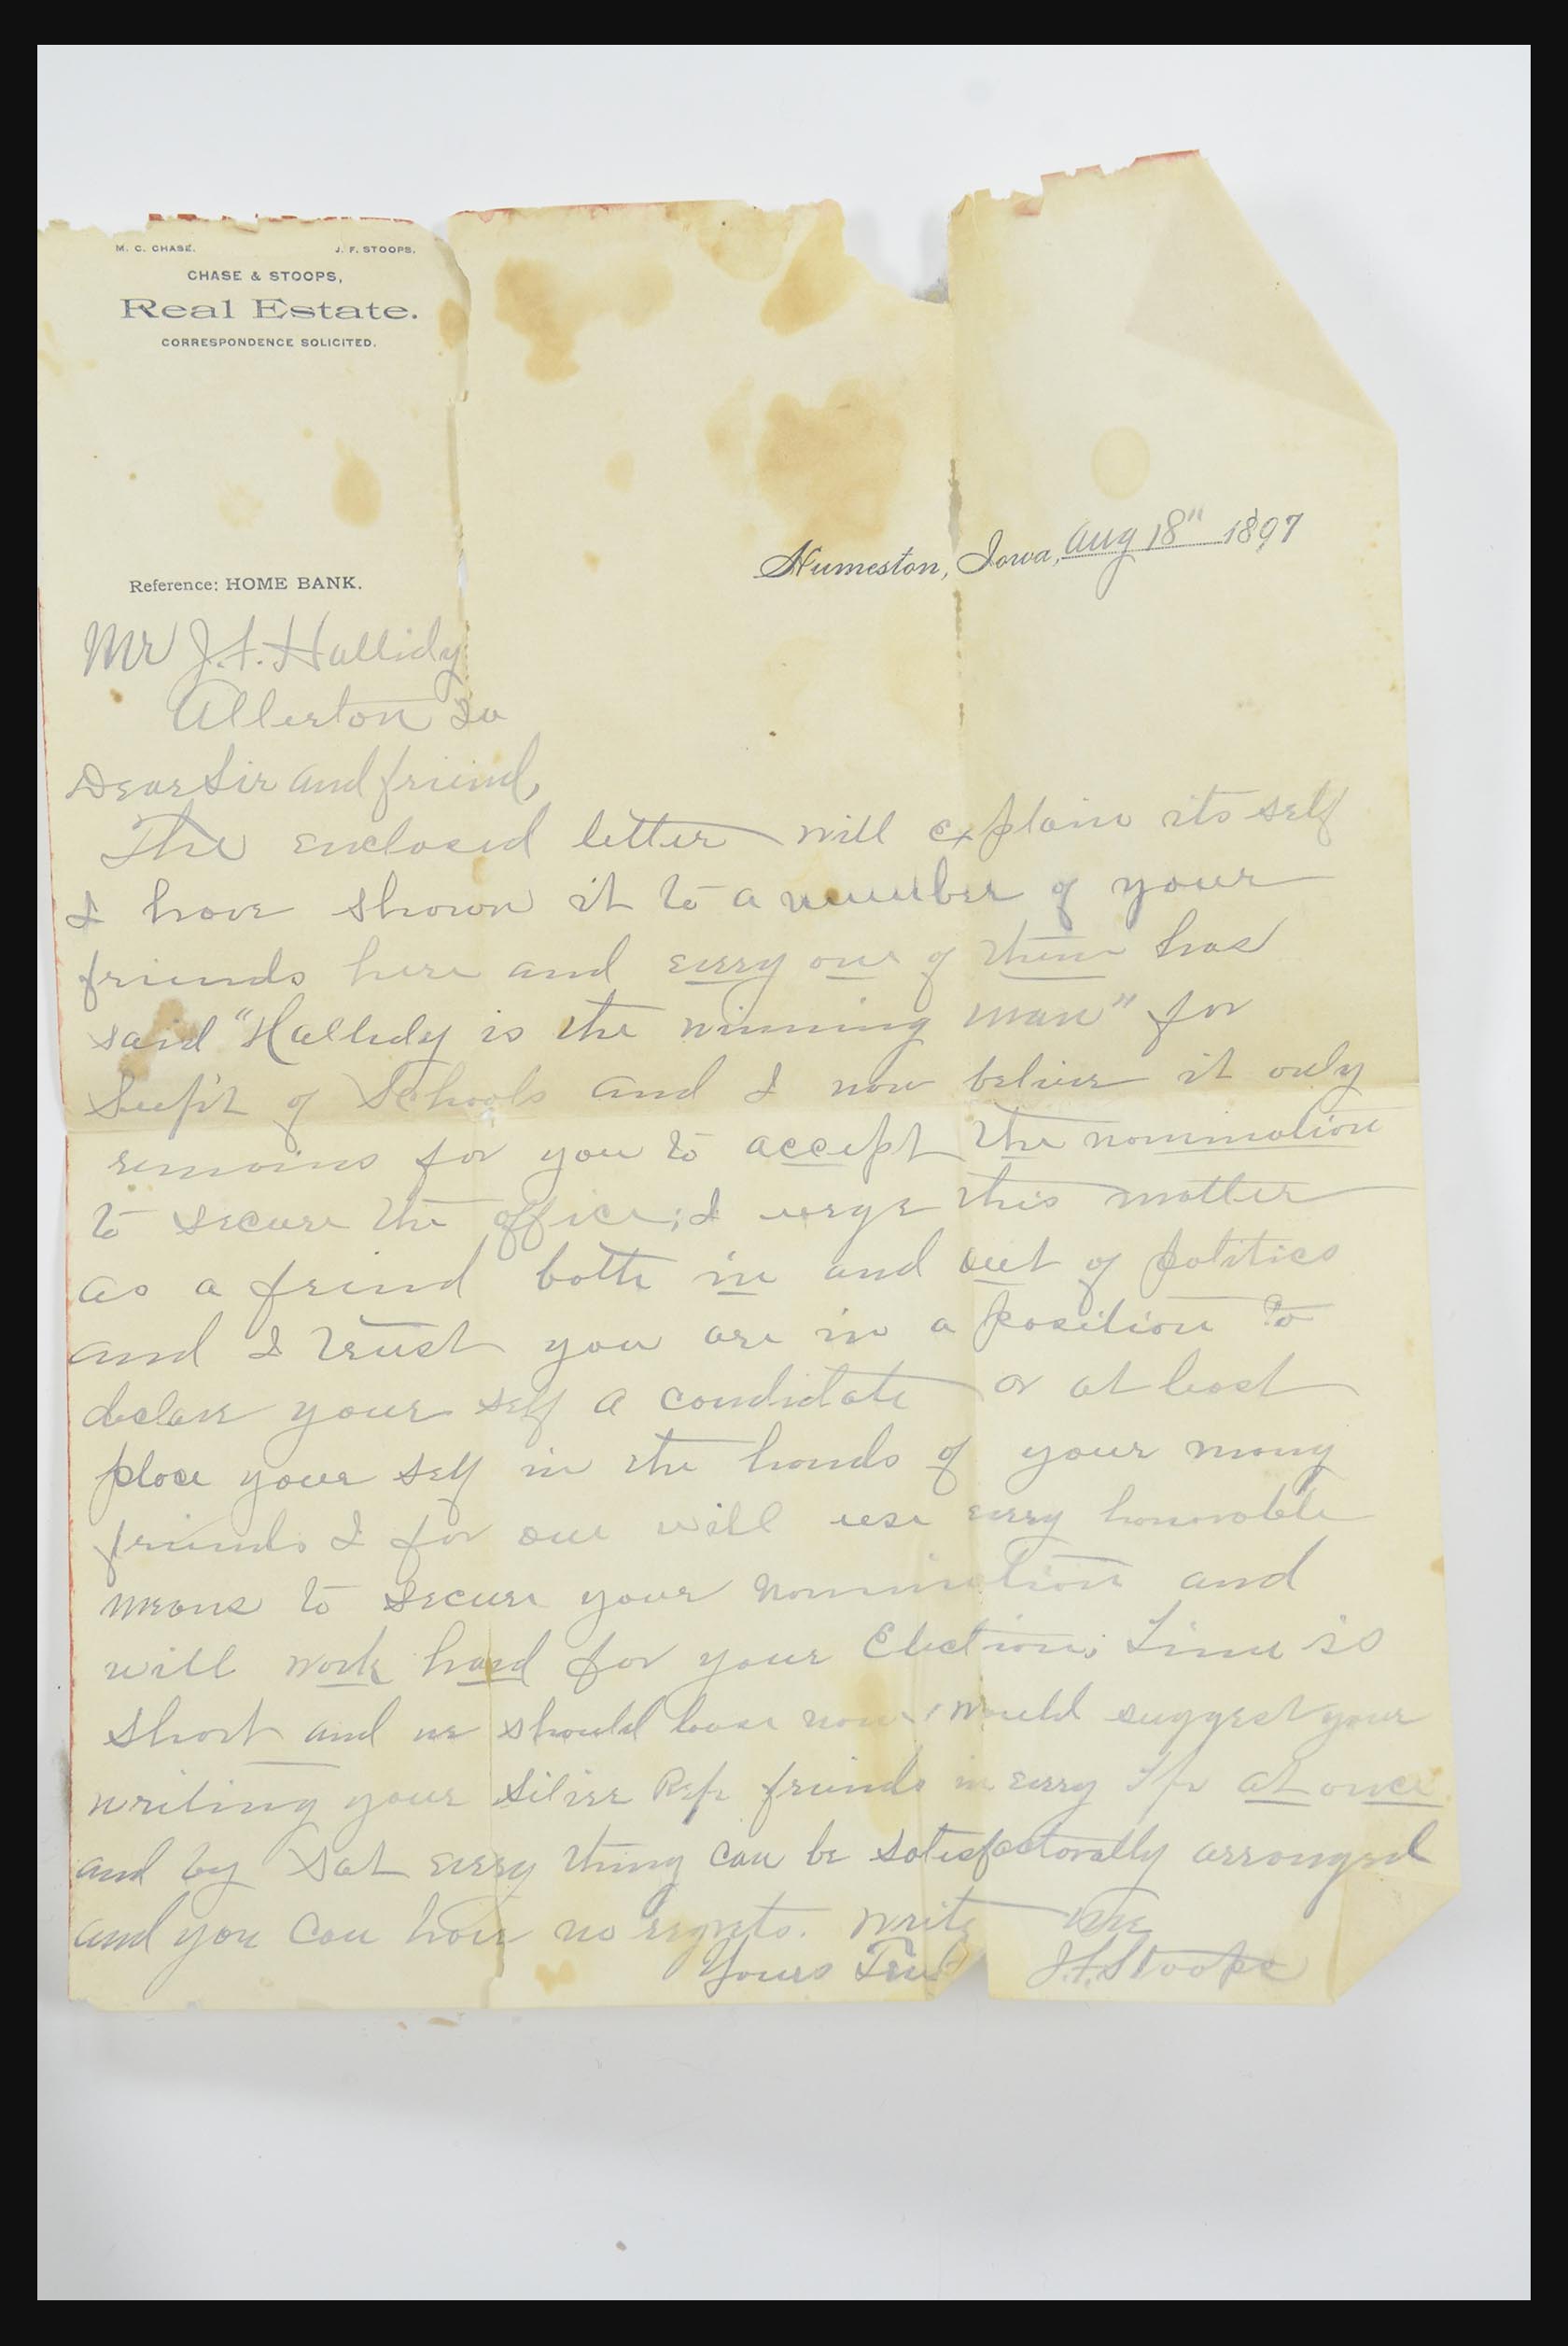 M. C. CHASE. J. F. STOOPS.
CHASE & STOOPS,
Real Estate.
CORRESPONDENCE SOLICITED.
Reference: HOME BANK.
Humeston, Iowa, Aug 18" 1897
Mr J.F. Hallidy
Allerton Ia
Dear Sir and friend,
The enclosed letter will explain its self
I have shown it to a number of your
friends here and every one of them has
said "Hallidy is the winning man" for
Sup't of Schools and I now believe it only
remains for you to accept the nomination
to secure the office; I urge this matter
as a friend both in and out of politics
and I trust you are in a position to
declare your self a candidate or at least
place your self in the hands of your many
friends I for one will use every honorable
means to secure your nomination and
will work hard for your Election; Time is
short and we should would suggest your
writing your Silver Rep friends in every Tp at once
and by Sat every thing can be satisfactorally arranged
and you can have no regrets. Write me
Yours Truly J.F. Stoops